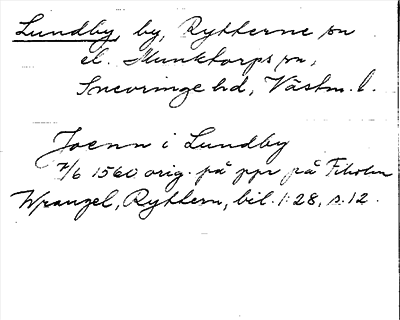 Lundby, by, Rytterne sn
el. Munktorps sn,
Snevringe hd, Västm. l.
Joenn i Lundby
7/6 1560 orig. på ppr på Fiholm
Wrangel, Ryttern, bil. 1:28, s. 12.